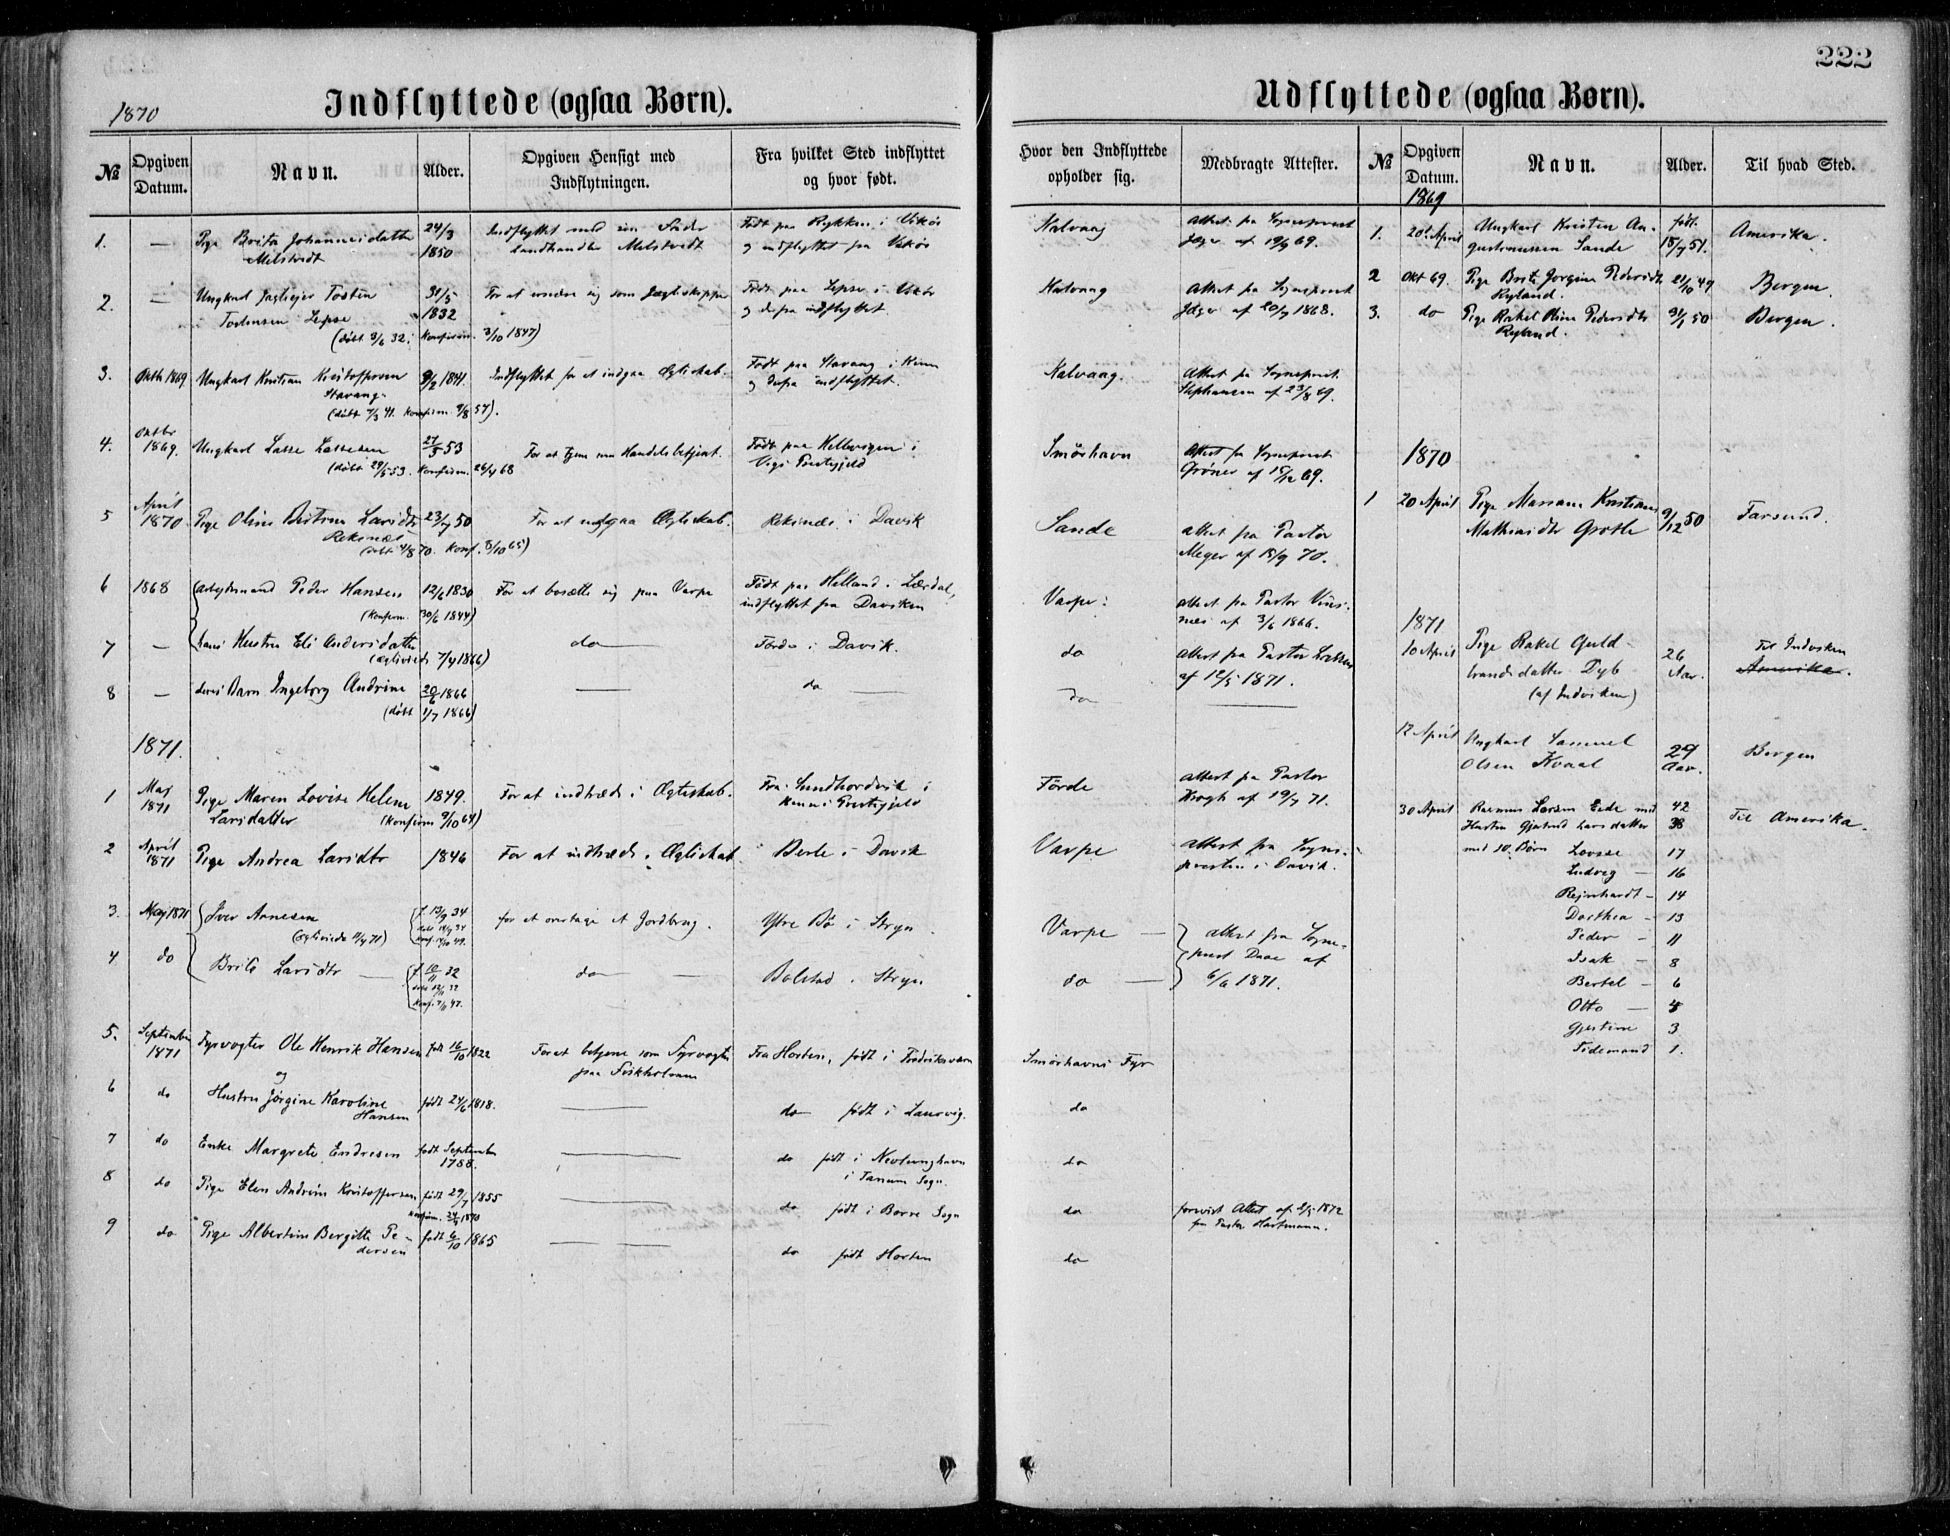 222
1870
Indflyttede (ogsaa Børn).
№ Opgiven Datum. Navn. Alder. Opgiven Hensigt med Indflytningen. Fra hvilket Sted indflyttet og hvor født.
1. — Pige Brita Johannesdatter 24/3 Indflyttet med sin Fader Født paa Rykken i Vikør
Melstvedt 1850 Landhandler Melstvedt og indflyttet fra Vikør
2. — Ungkarl Jagteier Tosten 31/5 For at ernære sig som Jægteskipper Født paa Lepsø i Vikør
Tostensen Lepsø 1832 og derfra indflyttet
(døbt 3/6 32. Konfirm. 3/10 1847)
3. Oktb 1869 Ungkarl Kristian Kristoffersen 9/2 1841. Indflyttet for at indgaa Ægteskab. Født paa Stavang i Kinn
Stavang og derfra indflyttet.
(døbt 7/3 41. Konfirm. 9/8 57).
4. Oktbr
1869. Ungkarl Lasse Lassesen 27/5 53 For at tjene som Handelsbetjent. Født paa Hellevigen i
(døbt 29/5 53. Konfirm. 26/4 68 Præstegjeld
5 April
1870. Pige Oline Larsdtr 23/7 50 For at indgaa Ægteskab. Reksnæs i Davik
Reksnæs
6 1868 Arbeidsmand Peder Hansen 12/6 1830 For at bosætte sig paa Varpe Født paa Helland i Lærdal,
(Konfirm. 30/6 1844) indflyttet fra Daviken
7 — hans Hustru Eli Andersdatter do Førde i Davik.
(ægteviede 7/4 1866)
8 — deres Barn Ingeborg Andrine 20/6 1866 — do —
(døbt 1/7 1866)
1871.
1 Maj
1871 Pige Maren Lovise Helene 1849. For at indtræde i Ægteskab. Fra Sundhordvik i
Larsdatter (Konfirm 9/10 64) Præstegjeld
2 April
1871 Pige Andrea Larsdtr 1846 For at indtræde i Ægteskab Berle i Davik
3. Maj 1871 Iver Arnesen f. 13/9 34 for at overtage et Jordbrug. Ytre Bø i Stryn
(ægteviede 11/4 71)
4 do Brite Larsdtr f. 10/11 32 do — Bolstad i Stryn
5. September
1871 Fyrvogter Ole Henrik Hansen født 16/10 1822 For at betjene som Fyrvogter Fra Horten, født i Fredriksværn
og
6 do Hustru Jørgine Karoline født 24/6 1818. — do født i Laurvig.
Hansen
7 do Enke Margrete Endresen født September — do født i Nevlunghavn
1788. i Tanum Sogn.
8 do Pige Elen Andrine Kristoffersen født 29/7 1855 — do født i Borre Sogn
9 do Pige Albertine Bergitte Pe- født 6/10 1865 — do født Horten
dersen
Udflyttede (ogsaa Børn).
Hvor den Indflyttede opholder sig. Medbragte Attester. № Opgiven Datum. Navn. Alder. Til hvad Sted.
1869
Kalvaag Attest fra Sognepræst 1. 20. April Ungkarl Kristen Au- født Amerika.
Jæger af 19/9 69. gustinussen Sande 15/7 51.
Kalvaag Attest fra Sognepræst 2 Okt 69. Pige Brite Jorgine Pedersdtr 21/10 49 Bergen.
Jæger af 20/7 1868. Ryland.
3. do Pige Rakel Oline Pedersdtr 31/1 50 Bergen.
Ryland.
Kalvaag. Attest fra Sognepræst
Stephansen af 23/8 69.
Smörhavn Attest fra Sognepræst 1870
Grøner af 15/12 69.
1 20 April Pige Mariane Kristiane 9/12 50 Farsund.
Mathiasdtr Grotle
Sande Attest fra Pastor
Meyer af 18/9 70.
Varpe. Attest fra Pastor
af 3/6 1866.
1871
do Attest fra Pastor 10 April Pige Rakel Guld- 26 Til Indviken
af 12/5 1871. brandsdatter Dyb Aar. Amerika.
do — (af Indviken)
12 April Ungkarl Samuel 29 Bergen
Olsen Kvaal Aar.
Førde Attest fra Pastor
Krogh af 19/7 71.
30 April Rasmus Larsen Eide med 42 Til Amerika.
Hustru Gjertrud Larsdatter 38
med 10 Børn Lovise 17
Ludvig — 16
Rejnhardt — 14
Dorthea — 13
Peder — 11
Isak — 8
Bertel — 6
Otto — 5
Gjertine 3
Tidemand 1.
Varpe Attest fra Sogne-
præsten i Davik.
Varpe — Attest fra Sogne-
præst Daae af
do — 6/6 1871.
Smörhavns Fyr
do
do
do forevist Attest af 2/5 1872
fra Pastor Hartmann.
do